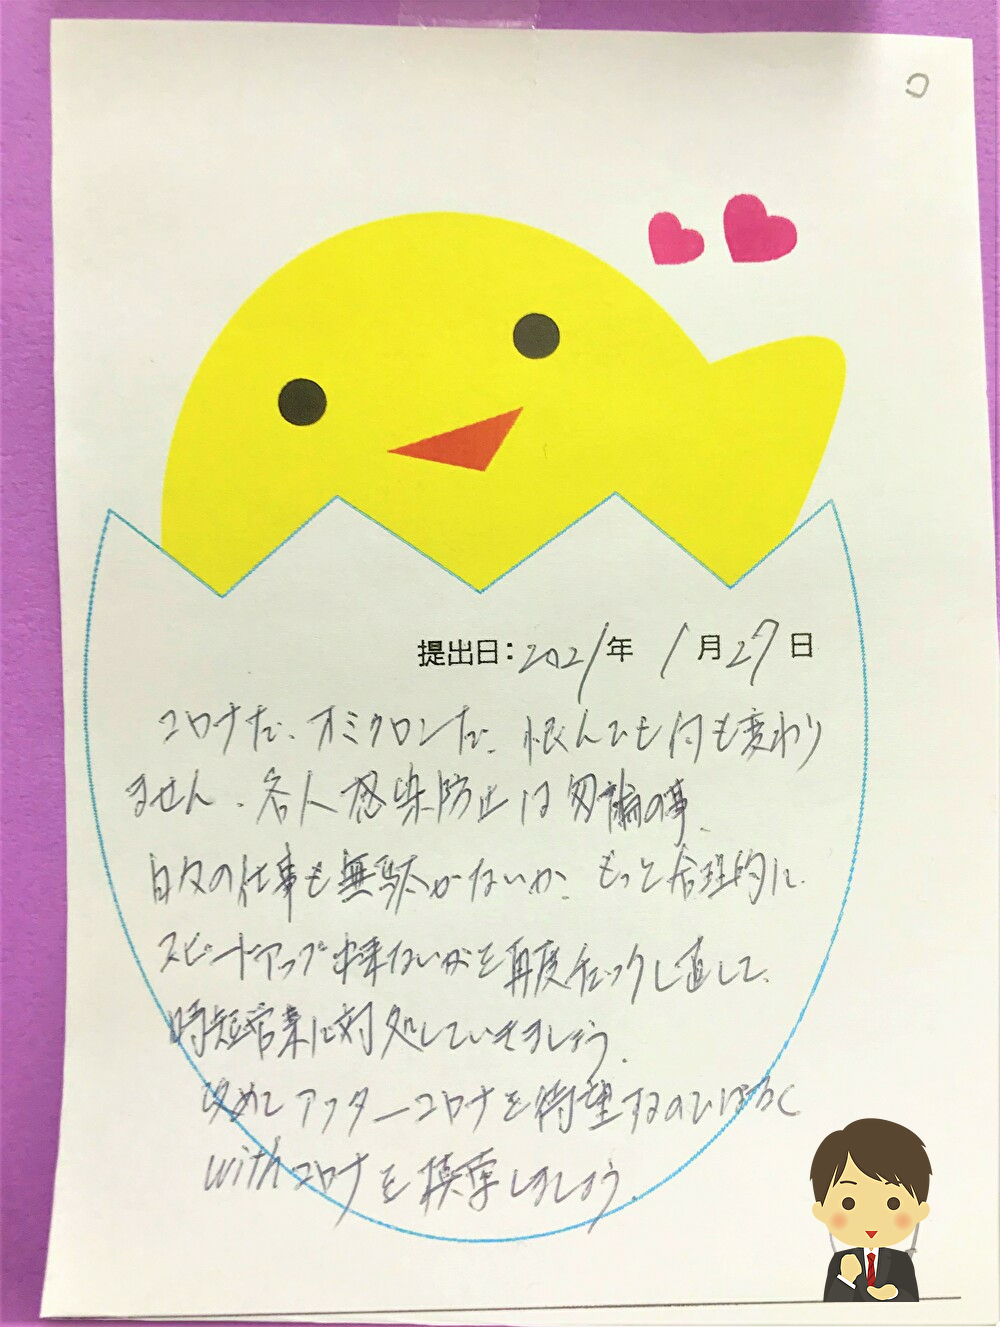 コ
提出日：2021年 1月27日
コロナだ、オミクロンだ、恨んでも何も変わり
ません。各人感染防止は勿論の事、
日々の仕事も無駄がないか、もっと合理的に、
スピードアップ出来ないかを再度チェックし直して、
時短営業に対処していきましょう。
改めてアフターコロナを待望するのではなく
withコロナを模索しましょう。